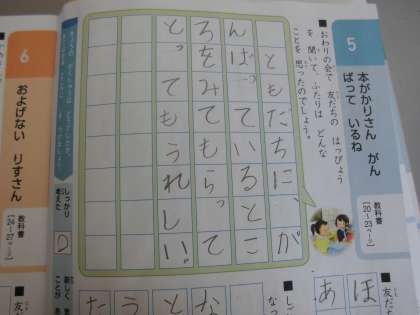 5
本がかりさん がん
ばって いるね
教科書
20〜23ページ
■おわりの会で 友だちの はっぴょう
を 聞いて、ふたりは どんな
ことを 思ったのでしょう。
ともだちに、が
んばっているとこ
ろをみてもらって
とってもうれしい。
しっかり
考えた
6
およげない りすさん
教科書
24〜27ページ
■友だち
ほ
あ
な
と
う
た